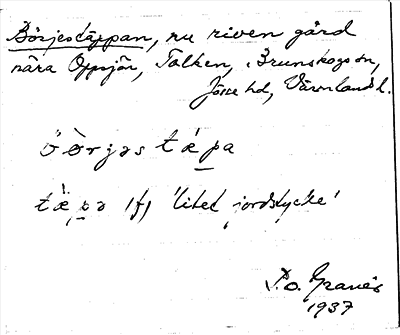 Börjestäppan, nu riven gård
nära Oppsjön, Tolken, Brunskogs sn,
Jösse hd, Värmlands l.
tæpa
tæpa (f) 'litet jordstycke'
P.O. Granér
1937